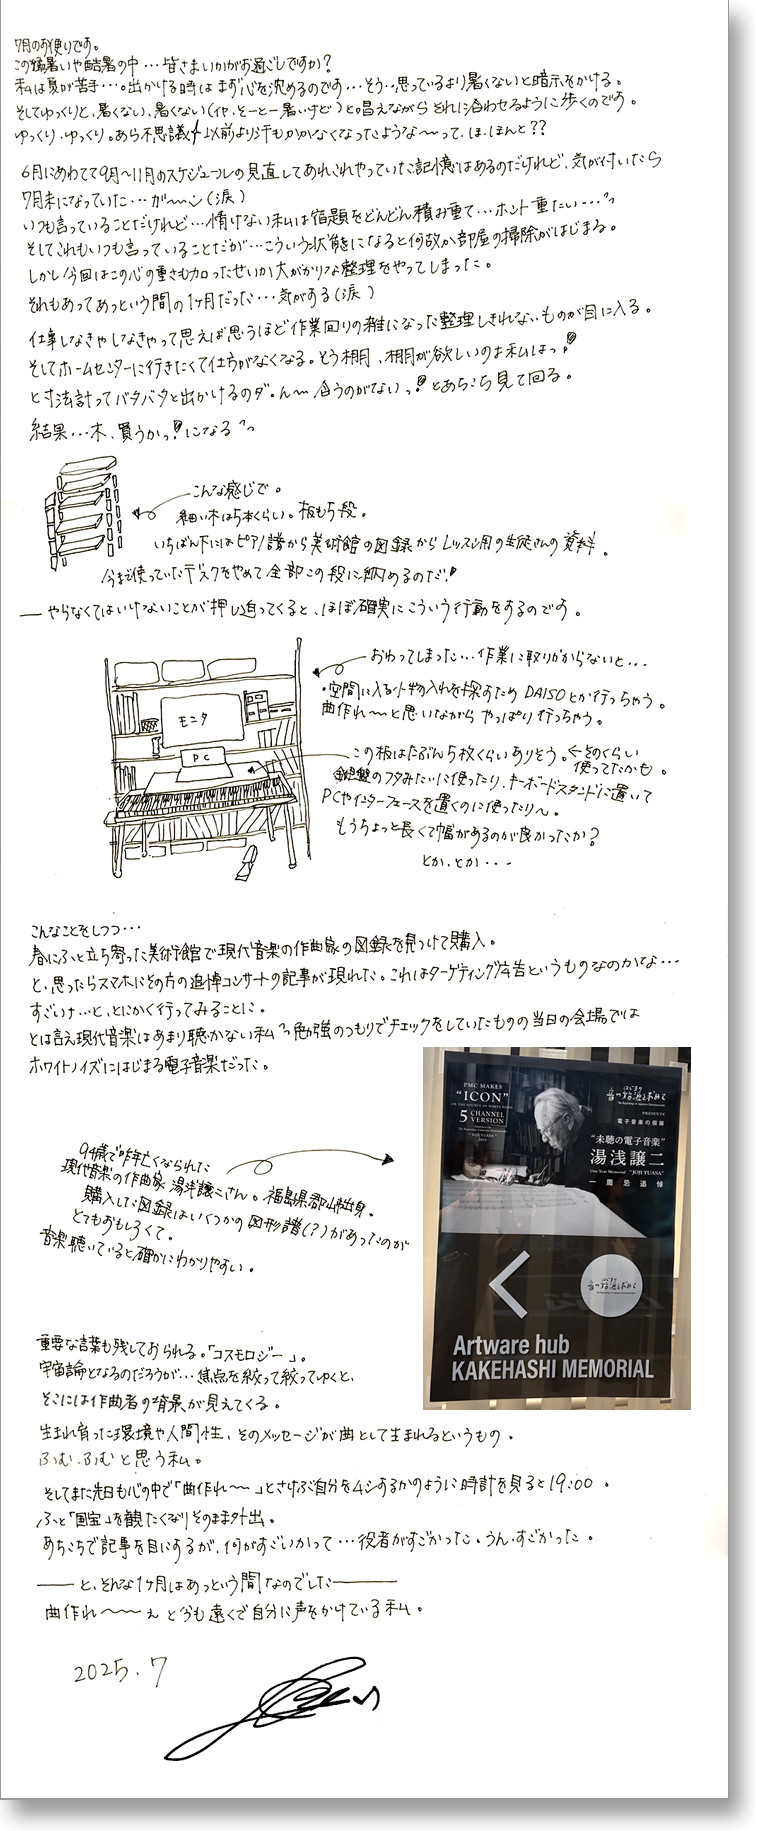 7月のお便りです。
この猛暑いや酷暑の中…皆さまいかがお過ごしですか?
私は夏が苦手…。出かける時はまず心を沈めるのです…そう…思っているより暑くないと暗示をかける。
そしてゆっくりと、暑くない、暑くない(いや、そーとー暑いけど)と唱えながら それに合わせるように歩くのです。
ゆっくり、ゆっくり。あら不思議 以前より汗もかかなくなったような〜って、ほ、ほんと??
6月にあわてて9月〜11月のスケジュールの見直してあれこれやっていた記憶はあるのだけれど、気が付いたら
7月末になっていた…が〜ン(涙)
いつも言っていることだけれど…情けない私は宿題をどんどん積み重て…ホント重たい…
そしてこれもいつも言っていることだが…こういう状態になると何故か部屋の掃除がはじまる。
しかし今回はこの心の重さも加わったせいか大がかりな整理をやってしまった。
それもあってあっという間の1ヶ月だった…気がする(涙)
仕事しなきゃしなきゃって思えば思うほど作業回りの雑になった整理しきれないものが目に入る。
そしてホームセンターに行きたくて仕方がなくなる。そう棚、棚が欲しいのよ私はっ!
と寸法計ってバタバタと出かけるのダ。ん〜合うのがないっ!とあちこち見て回る。
結果…木、買うかっ!になる
こんな感じで。
細い木は5本くらい。板も5段。
いちばん下にはピアノ譜から美術館の図録からレッスン用の生徒さんの資料。
今まで使っていたデスクをやめて全部この段に納めるのだ!
―やらなくてはいけないことが押し迫ってくると、ほぼ確実にこういう行動をするのです。
おわってしまった…作業に取りかからないと…
・空間に入る小物入れを探すため DAISOとか行っちゃう。
曲作れ〜と思いながら やっぱり行っちゃう。
モニタ
PC
この板はたぶん5枚くらいありそう。←そのくらい
使ってたかも。
鍵盤のフタみたいに使ったり、キーボードスタンドに置いて
PCやインターフェースを置くのに使ったり〜。
もうちょっと長くて幅があるのが良かったか?
とか、とか…
こんなことをしつつ…
春にふと立ち寄った美術館で現代音楽の作曲家の図録を見つけて購入。
と、思ったらスマホにその方の追悼コンサートの記事が現れた。これはターゲティング広告というものなのかな…
すごいナ…と、とにかく行ってみることに。
とは言え現代音楽はあまり聴かない私 勉強のつもりでチェックをしていたものの当日の会場では
ホワイトノイズにはじまる電子音楽だった。
94歳で昨年亡くなられた
現代音楽の作曲家 湯浅譲二さん。福島県郡山出身。
購入した図録はいくつかの図形譜(?)があったのが
とてもおもしろくて。
音楽聴いていると確かにわかりやすい。
PMC MAKES
"ICON"
ON THE SOURCE OF WHITE NOISE
5 CHANNEL
VERSION
"JOJI YUASA"
はじまり
音の始源を求めて
PRESENTS
電子音楽の個展
"未聴の電子音楽"
湯浅譲二
One Year Memorial "JOJI YUASA"
一周忌追悼
はじまり
音の始源を求めて
Artware hub
KAKEHASHI MEMORIAL
重要な言葉も残しておられる。「コスモロジー」。
宇宙論となるのだろうが…焦点を絞って絞ってゆくと、
そこには作曲者の背景が見えてくる。
生まれ育った環境や人間性、そのメッセージが曲として生まれるというもの。
ふむ、ふむと思う私。
そしてまた先日も心の中で「曲作れ〜」とさけぶ自分をムシするかのように時計を見ると19:00。
ふと「国宝」を観たくなりそのまま外出。
あちこちで記事を目にするが、何がすごいかって…役者がすごかった。うん、すごかった。
――と、そんな1ヶ月はあっという間なのでした――
曲作れ〜〜ぇ と今も遠くで自分に声をかけている私。
2025.7